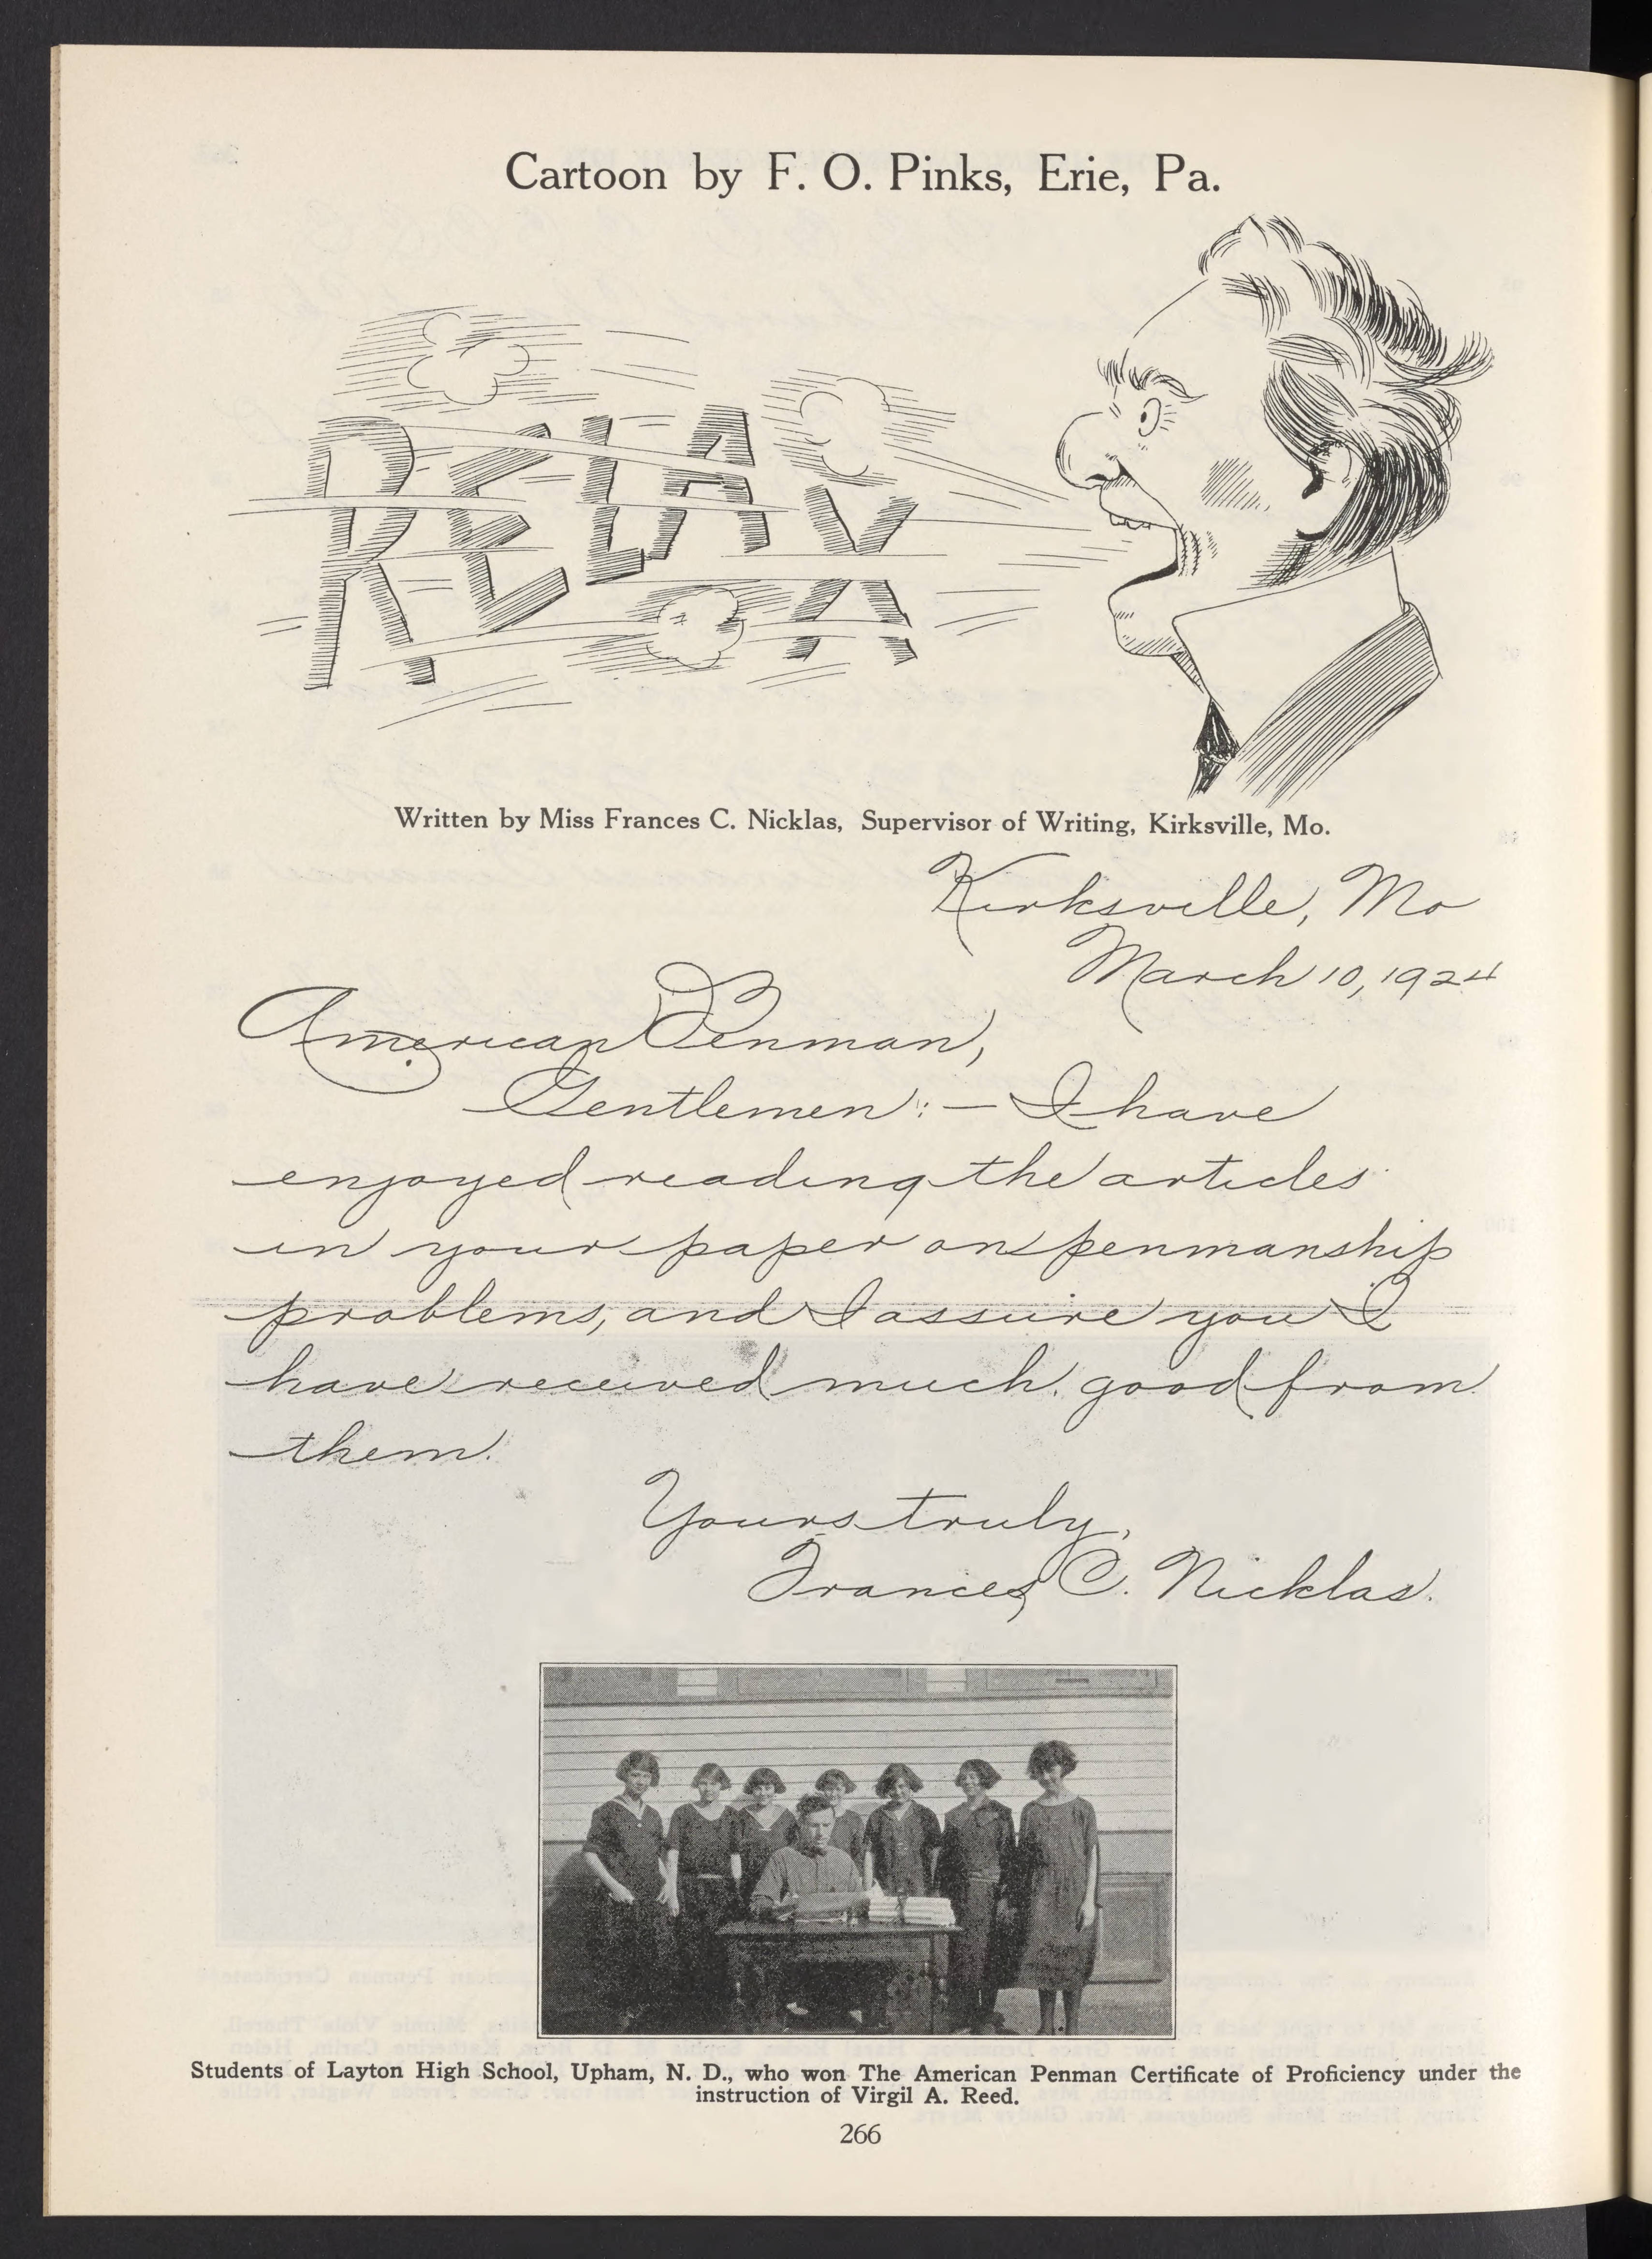 Cartoon by F. O. Pinks, Erie, Pa.
RELAX
Written by Miss Frances C. Nicklas, Supervisor of Writing, Kirksville, Mo.
Kirksville, Mo
March 10, 1924
American Penman,
Gentlemen:— I have
enjoyed reading the articles
in your paper on penmanship
problems, and I assure you I
have received much good from
them.
Yours truly,
Frances C. Nicklas.
Students of Layton High School, Upham, N. D., who won The American Penman Certificate of Proficiency under the
instruction of Virgil A. Reed.
266